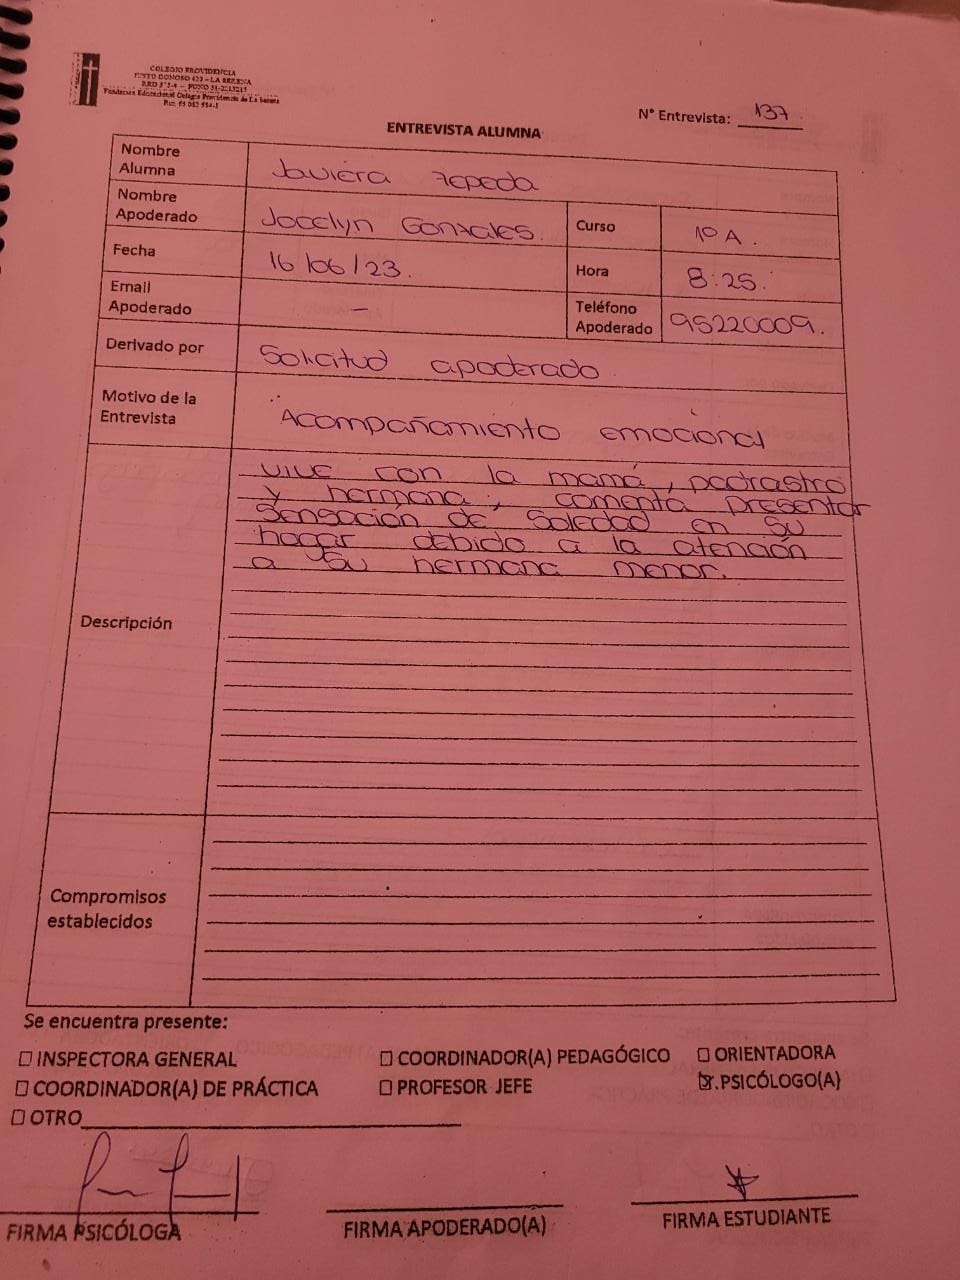 COLEGIO PROVIDENCIA
JUSTO DONOSO 420 – LA SERENA
Fundación Educacional Colegio Providencia de La Serena
N° Entrevista: 137.
ENTREVISTA ALUMNA
Nombre Alumna Javiera Zepeda
Nombre Apoderado Jocelyn Gonzales. Curso 1º A.
Fecha 16/06/23. Hora 8:25.
Email Apoderado – Teléfono Apoderado 95220009.
Derivado por Solicitud apoderado
Motivo de la Entrevista Acompañamiento emocional
Descripción
vive con la mamá, padrastro
y hermana, comenta presentar
sensación de soledad en su
hogar debido a la atención
a su hermana menor.
Compromisos establecidos
Se encuentra presente:
☐ INSPECTORA GENERAL ☐ COORDINADOR(A) PEDAGÓGICO ☐ ORIENTADORA
☐ COORDINADOR(A) DE PRÁCTICA ☐ PROFESOR JEFE ☒ PSICÓLOGO(A)
☐ OTRO
FIRMA PSICÓLOGA FIRMA APODERADO(A) FIRMA ESTUDIANTE